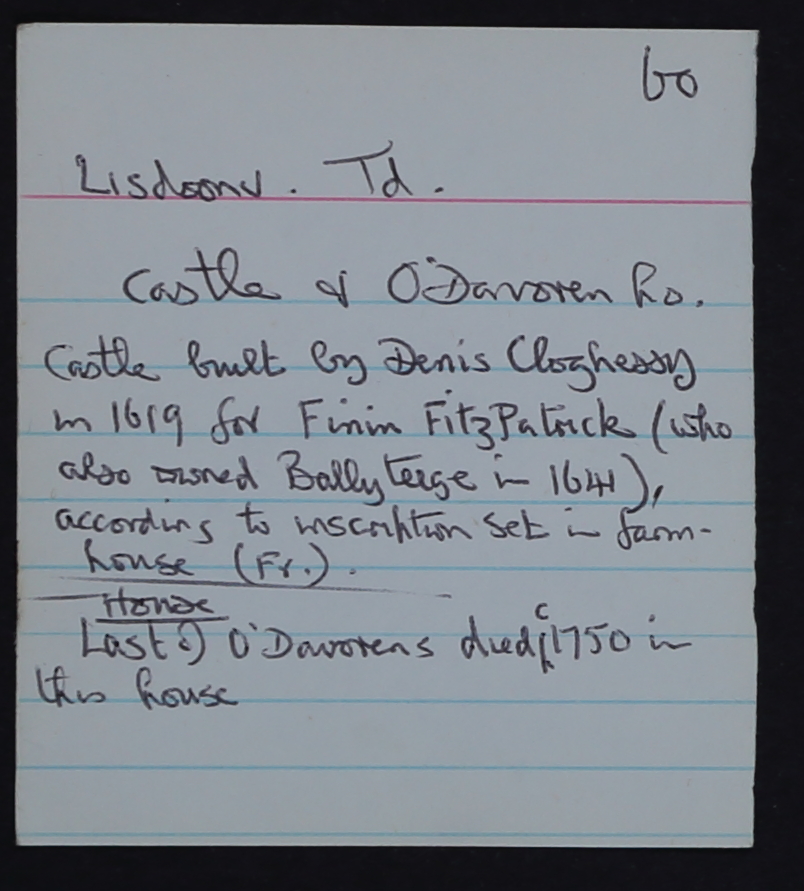 60
Lisdoonv. Td.
Castle & O'Davoren ho.
Castle built by Denis Cloghessy
in 1619 for Finin FitzPatrick (who
also owned Ballyteige in 1641),
according to inscription set in farm-
house (Fr.).
House
Last of O'Davorens died c 1750 in
this house